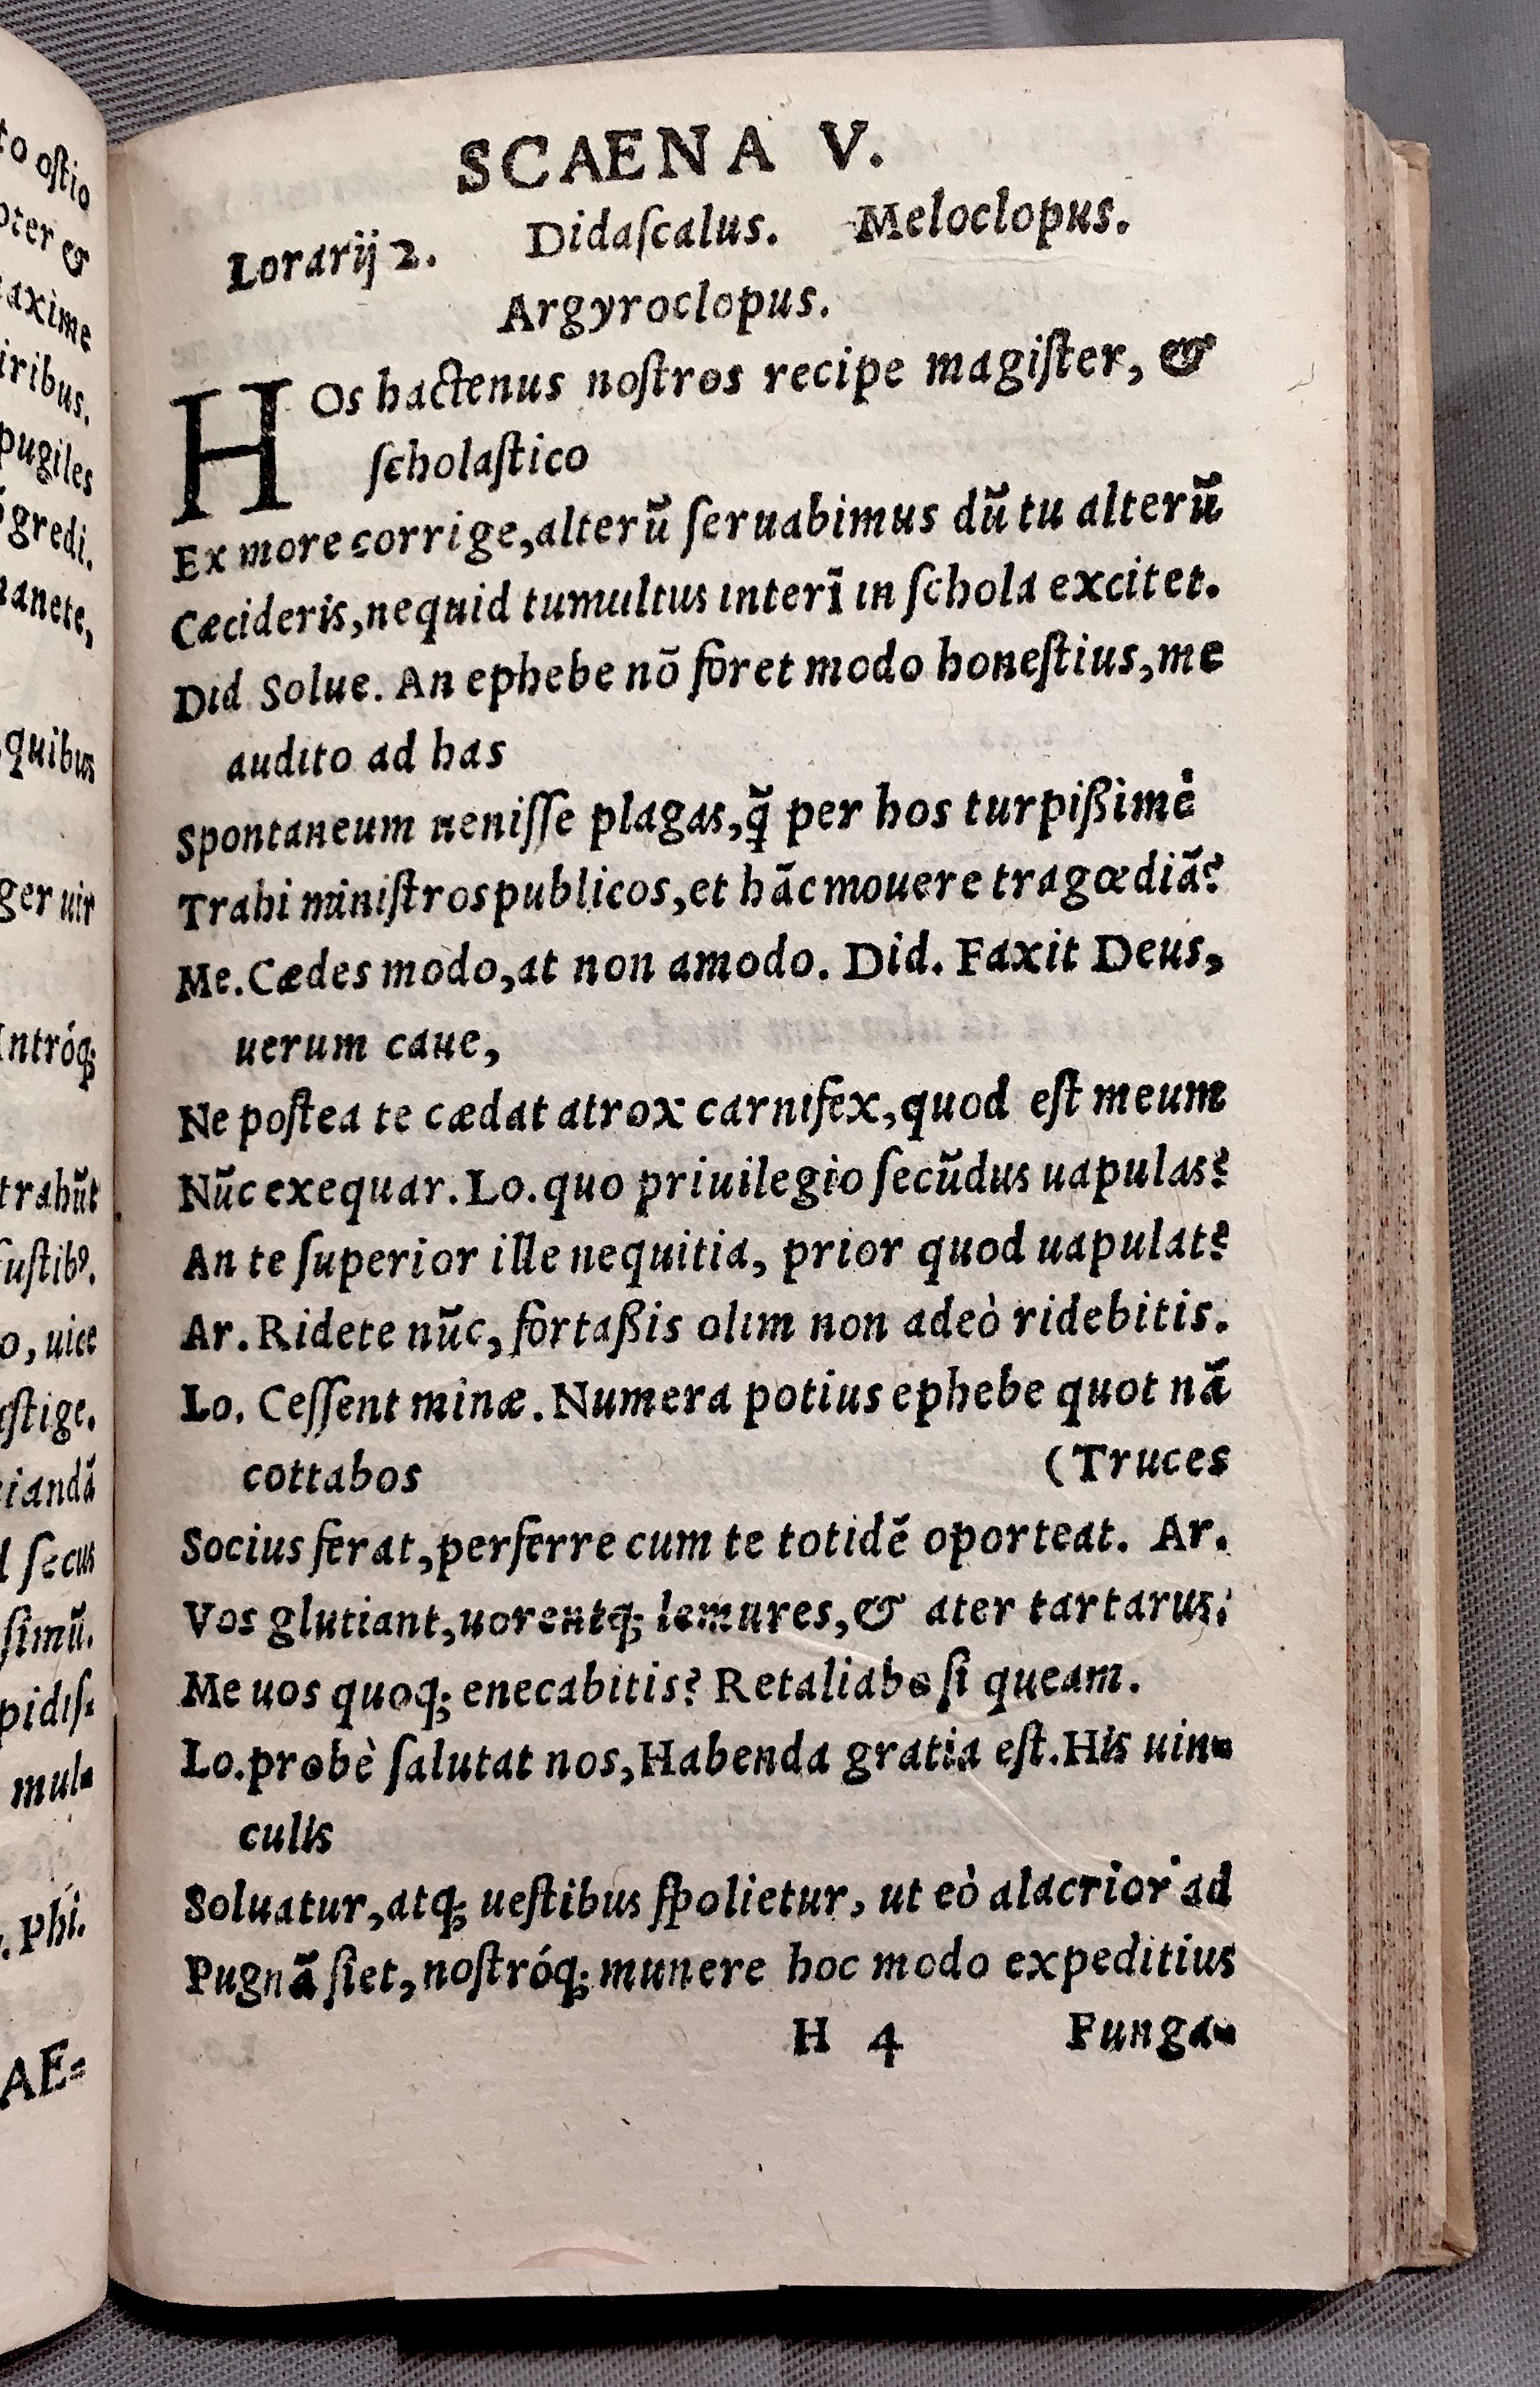 to oſtio
pter &
axime
iribus.
pugiles
gredi.
manete,
quibus
ger uir
Intróq;
trahūt
fuſtibꝰ.
o, uice
ſtige.
ciandā
ſecus
ſimū.
pidiſ-
mul-
Phi.
AE=
SCAENA V.
Lorarij 2. Didaſcalus. Meloclopus.
Argyroclopus.
HOs hactenus noſtros recipe magiſter, &
ſcholaſtico
Ex more corrige, alterū ſeruabimus dū tu alterū
Cæcideris, nequid tumultus interī in ſchola excitet.
Did Solue. An ephebe nō foret modo honeſtius, me
audito ad has
Spontaneum ueniſſe plagas, q̄ per hos turpißimè
Trahi miniſtros publicos, et hāc mouere tragœdiā?
Me. Cædes modo, at non amodo. Did. Faxit Deus,
uerum caue,
Ne poſtea te cædat atrox carnifex, quod eſt meum
Nūc exequar. Lo. quo priuilegio ſecūdus uapulas?
An te ſuperior ille nequitia, prior quod uapulat?
Ar. Ridete nūc, fortaßis olim non adeò ridebitis.
Lo. Ceſſent minæ. Numera potius ephebe quot nā
cottabos (Truces
Socius ferat, perferre cum te totidē oporteat. Ar.
Vos glutiant, uorentq; lemures, & ater tartarus:
Me uos quoq; enecabitis? Retaliabo ſi queam.
Lo. probè ſalutat nos, Habenda gratia eſt. His uin-
culis
Soluatur, atq; ueſtibus ſpolietur, ut eò alacrior ad
Pugnā ſiet, noſtróq; munere hoc modo expeditius
H 4 Funga-